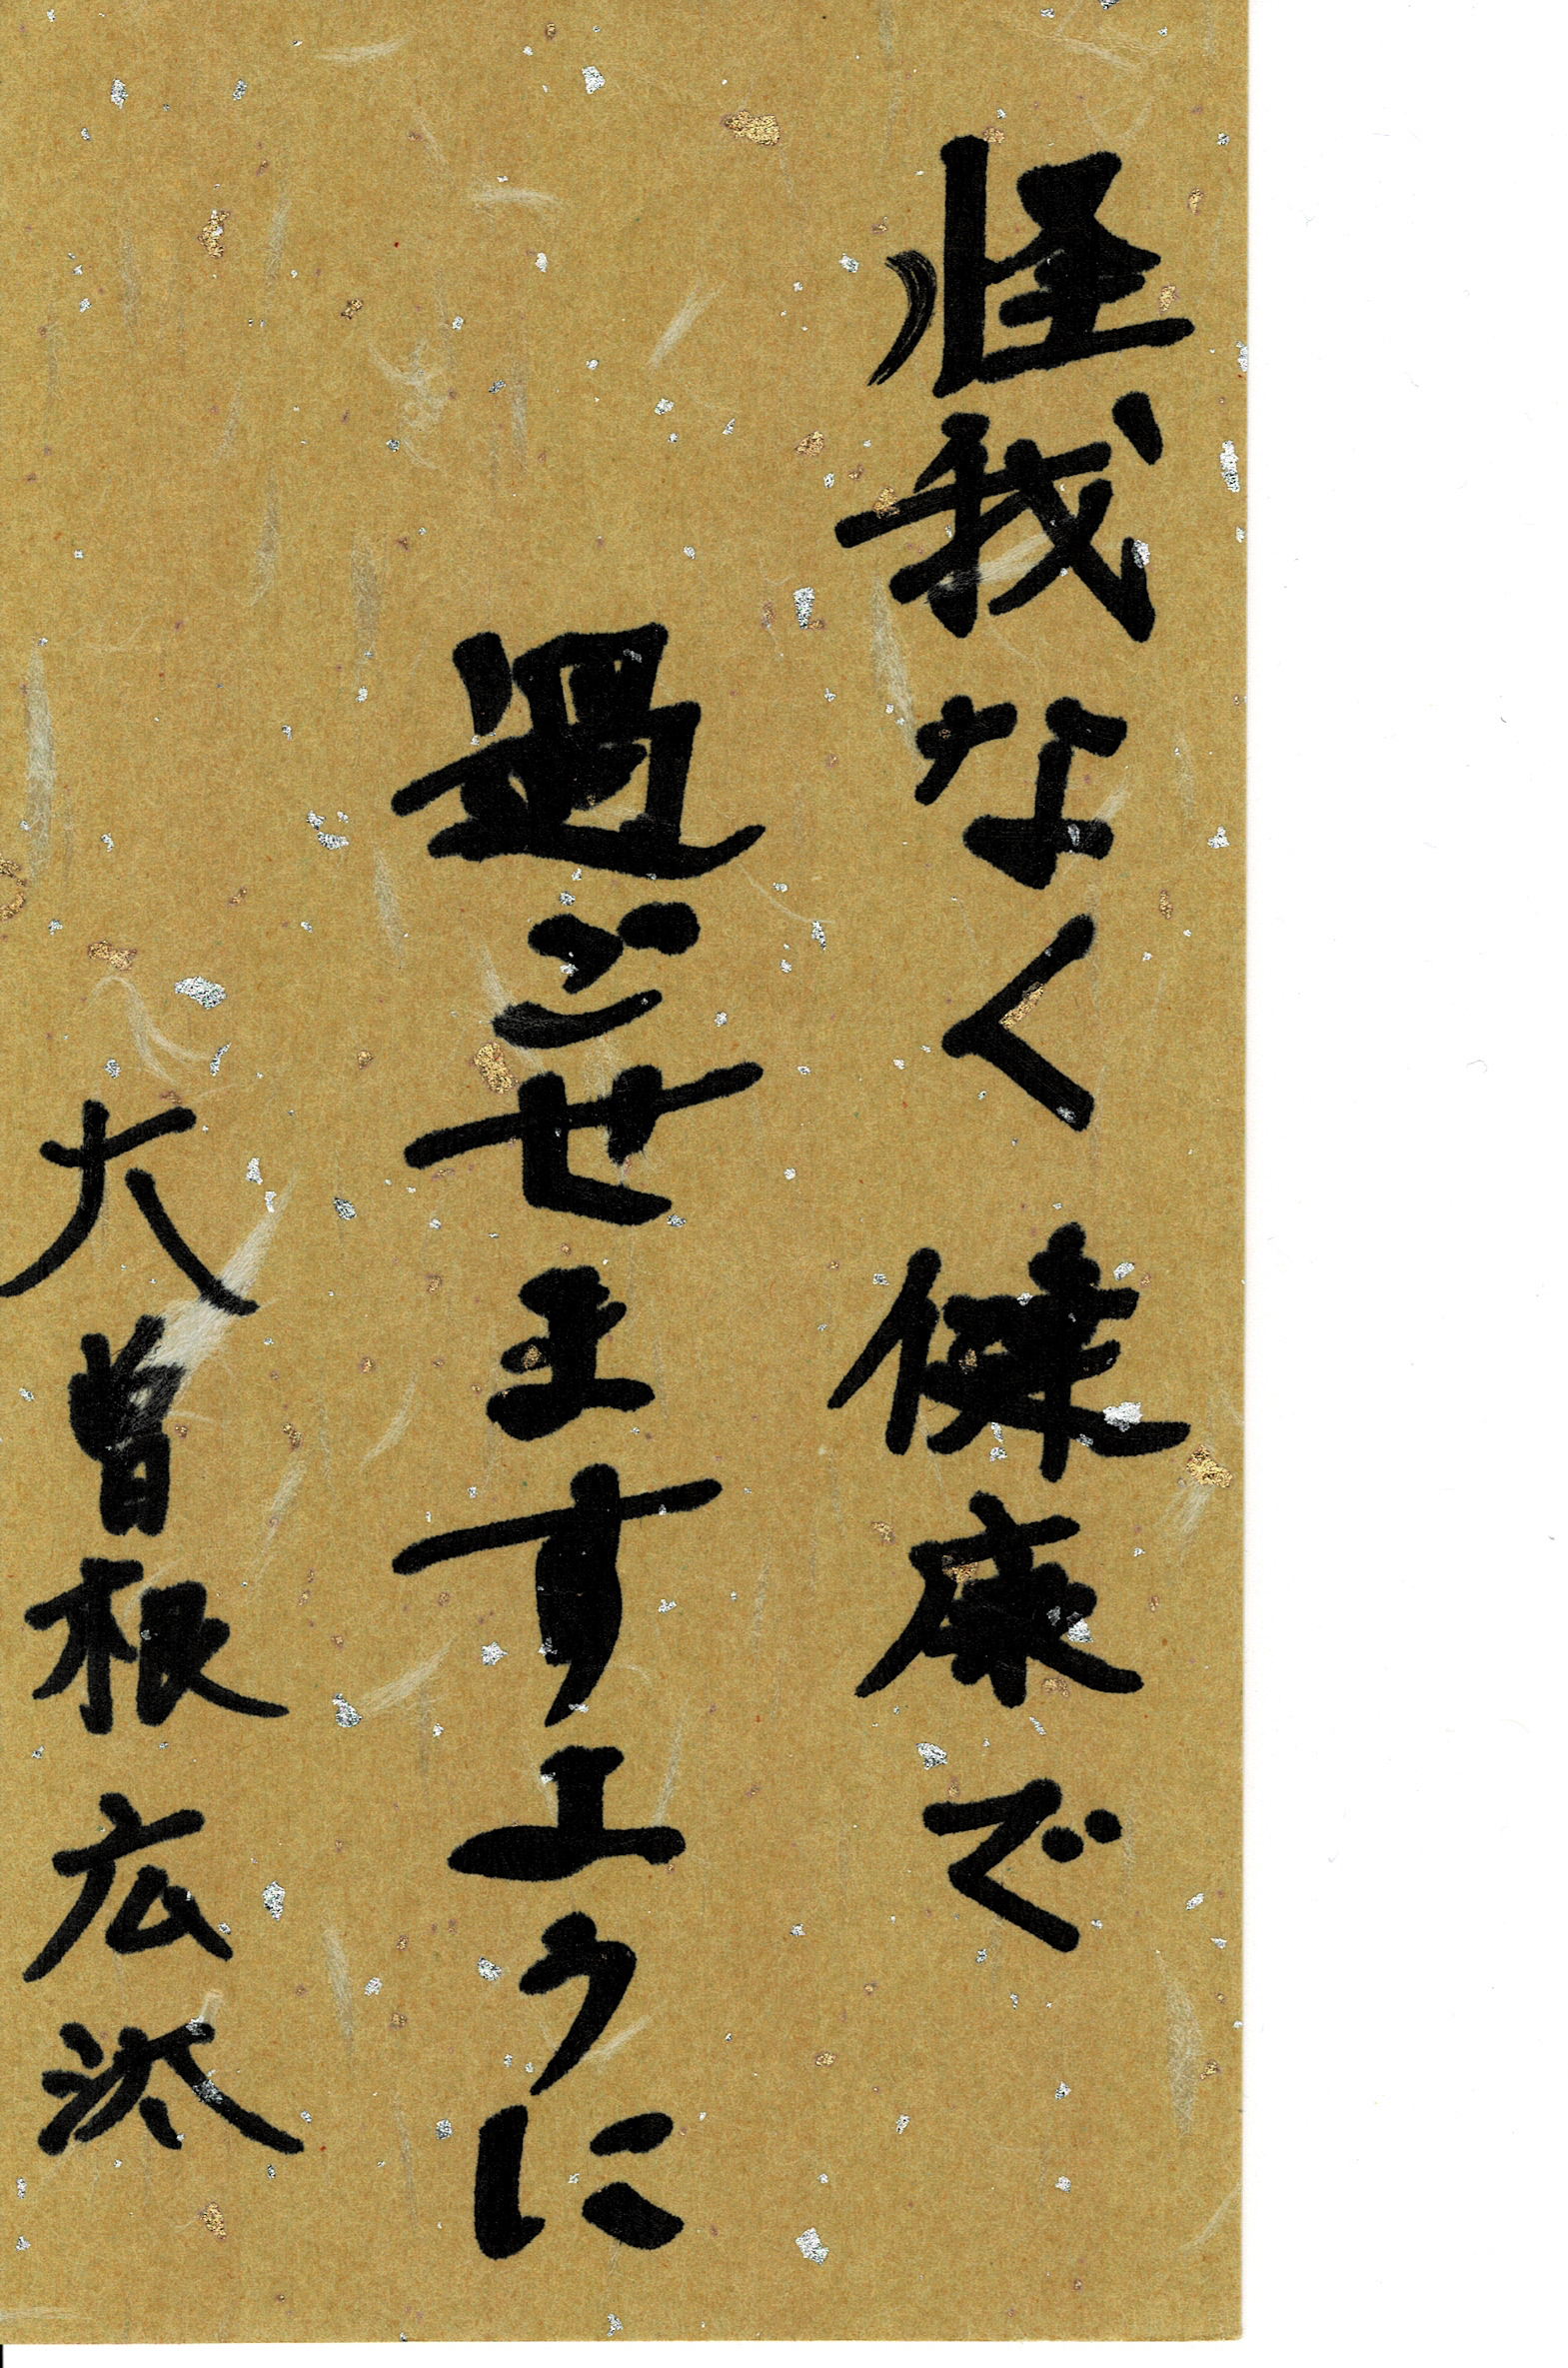 怪我なく健康で
過ごせますように
大曽根広